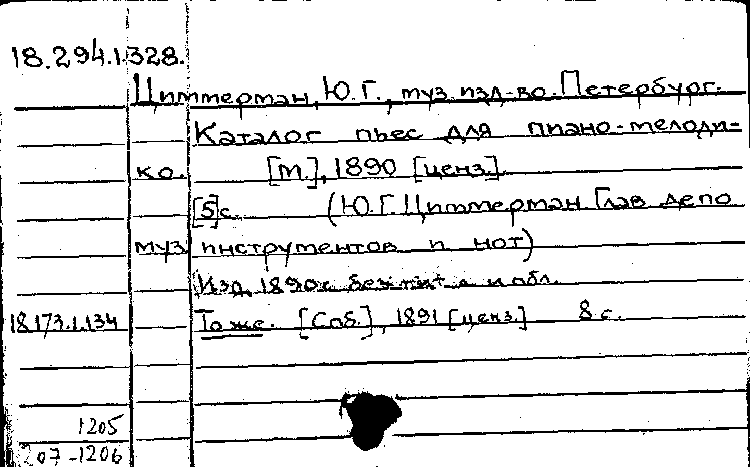 18.294.1.328.
Циммерман, Ю.Г., муз. изд-во. Петербург.
Каталог пьес для пиано-мелоди-
ко. [М.], 1890 [ценз].
[5]с. (Ю.Г. Циммерман. Глав депо
муз инструментов и нот)
Изд. 1890г. без тит. л. и обл.
18.173.1.134 То же. [Спб.], 1891 [ценз.] 8 с.
1205
207-1206